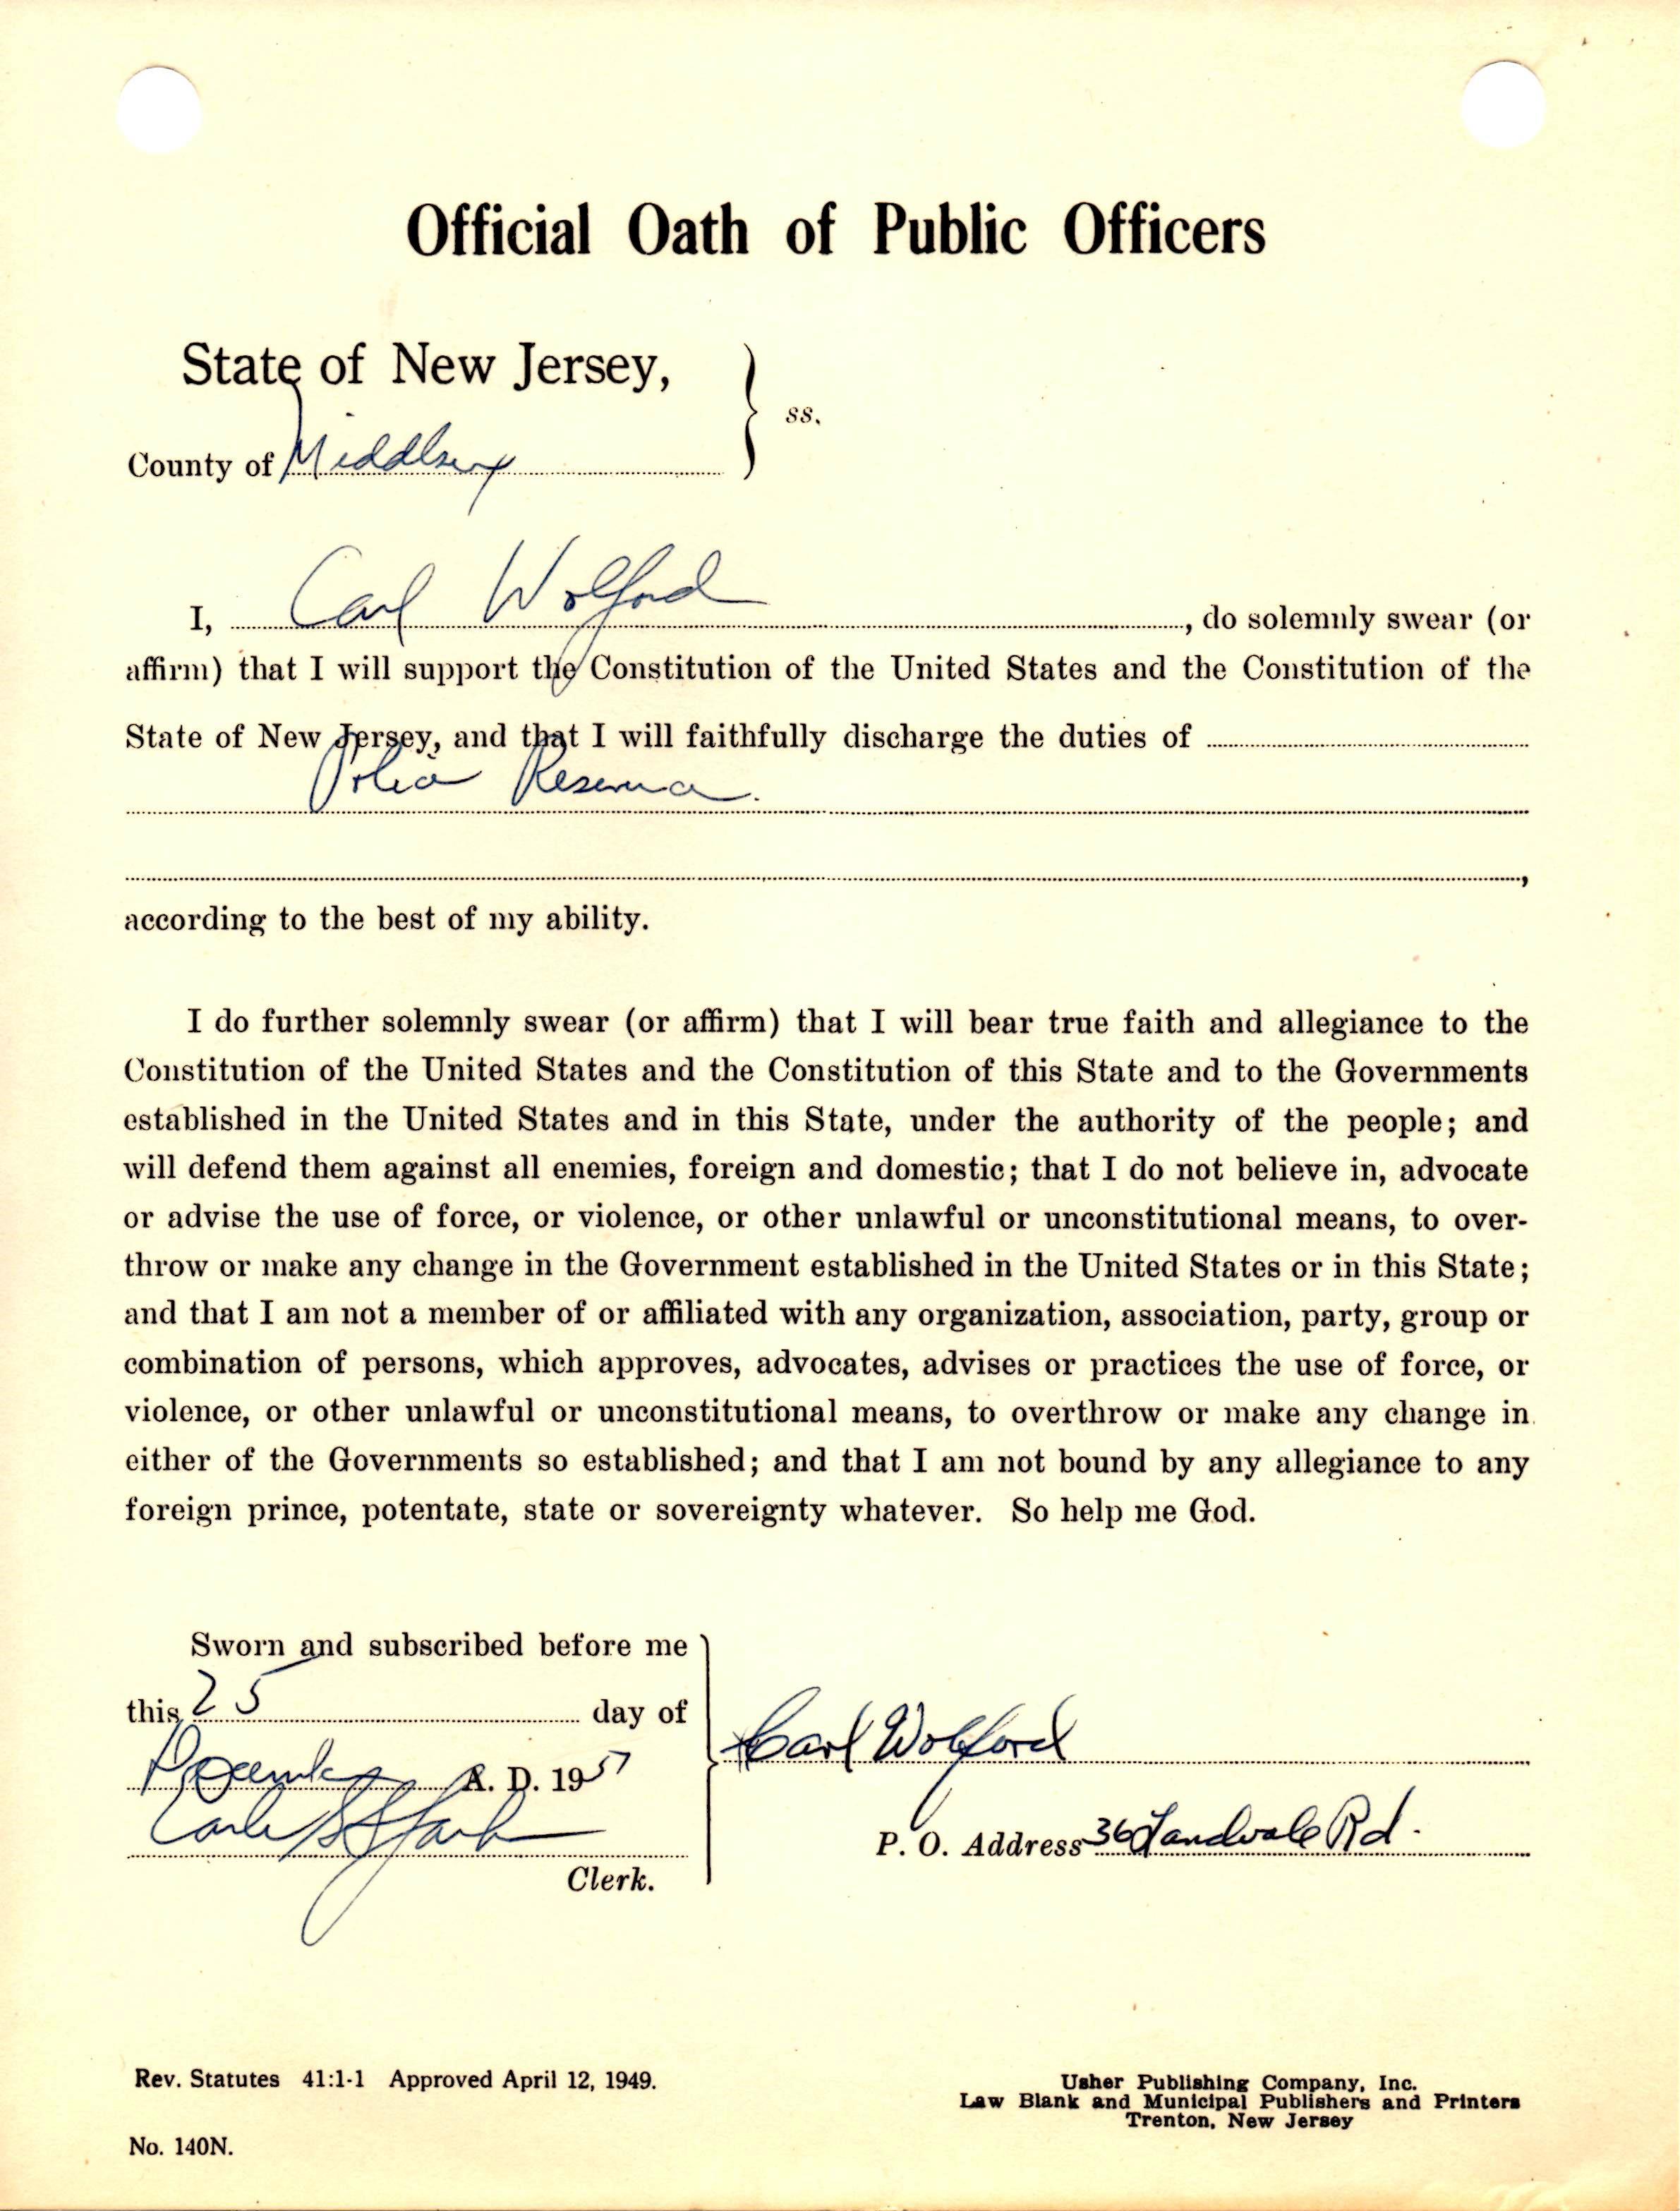 Official Oath of Public Officers
State of New Jersey,
ss.
County of Middlesex
I, Carl Wolford, do solemnly swear (or
affirm) that I will support the Constitution of the United States and the Constitution of the
State of New Jersey, and that I will faithfully discharge the duties of
Police Reserve.
,
according to the best of my ability.
I do further solemnly swear (or affirm) that I will bear true faith and allegiance to the
Constitution of the United States and the Constitution of this State and to the Governments
established in the United States and in this State, under the authority of the people; and
will defend them against all enemies, foreign and domestic; that I do not believe in, advocate
or advise the use of force, or violence, or other unlawful or unconstitutional means, to over-
throw or make any change in the Government established in the United States or in this State;
and that I am not a member of or affiliated with any organization, association, party, group or
combination of persons, which approves, advocates, advises or practices the use of force, or
violence, or other unlawful or unconstitutional means, to overthrow or make any change in
either of the Governments so established; and that I am not bound by any allegiance to any
foreign prince, potentate, state or sovereignty whatever. So help me God.
Sworn and subscribed before me
this 25 day of
December A. D. 1957
Clerk.
Carl Wolford
P. O. Address 36 Landvale Rd.
Rev. Statutes 41:1-1 Approved April 12, 1949.
No. 140N.
Usher Publishing Company, Inc.
Law Blank and Municipal Publishers and Printers
Trenton, New Jersey